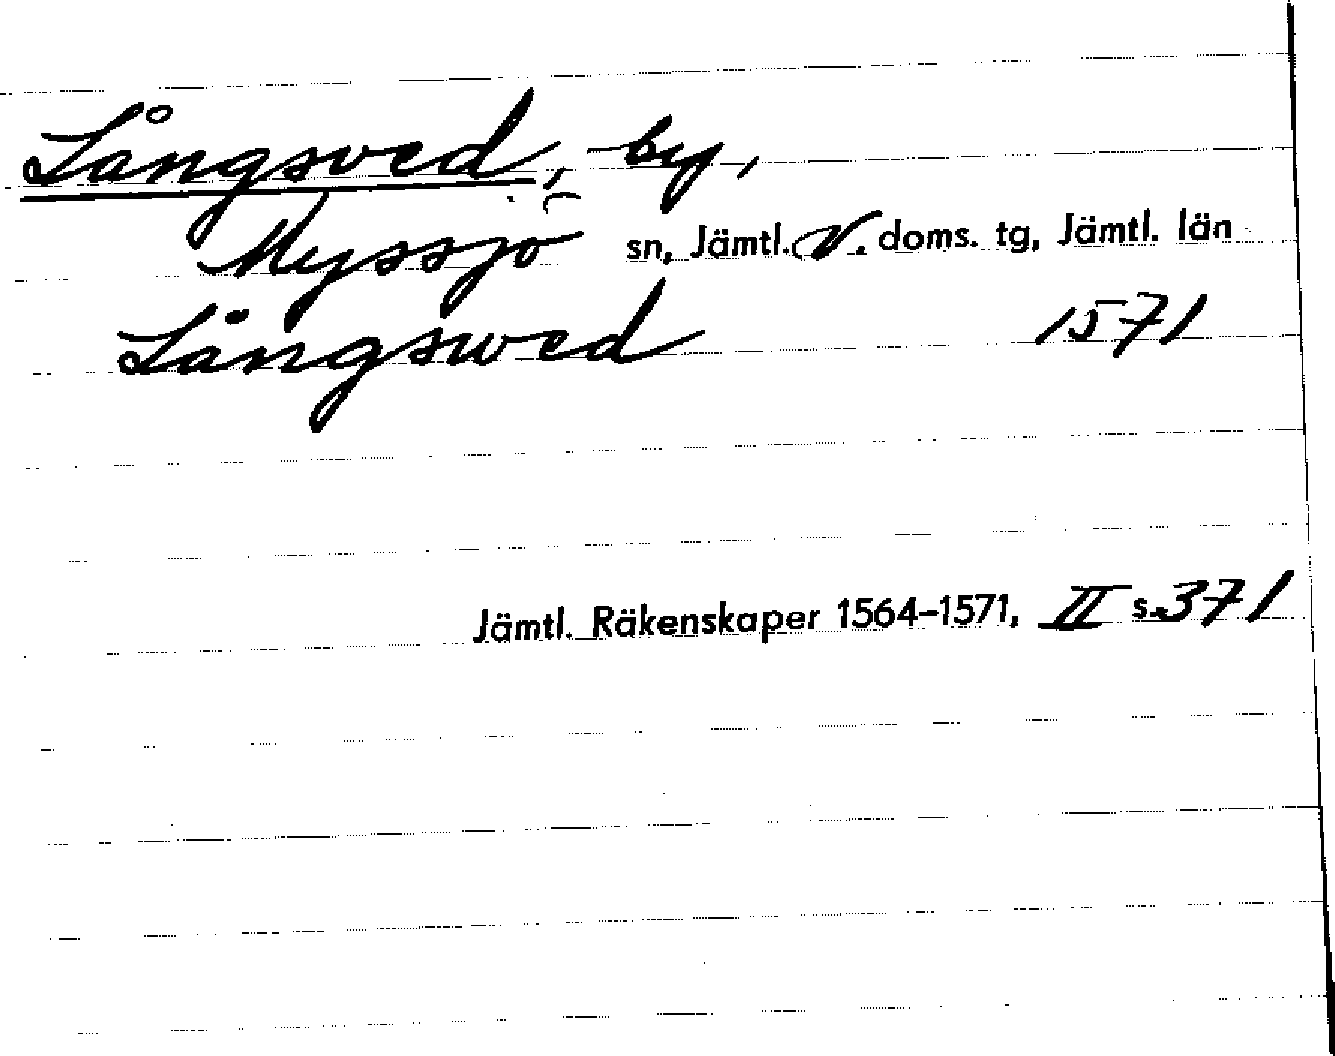 Långsved, by,
Myssjö sn, Jämtl. V. doms. tg, Jämtl. län
Långswed 1571
Jämtl. Räkenskaper 1564-1571, II s. 371